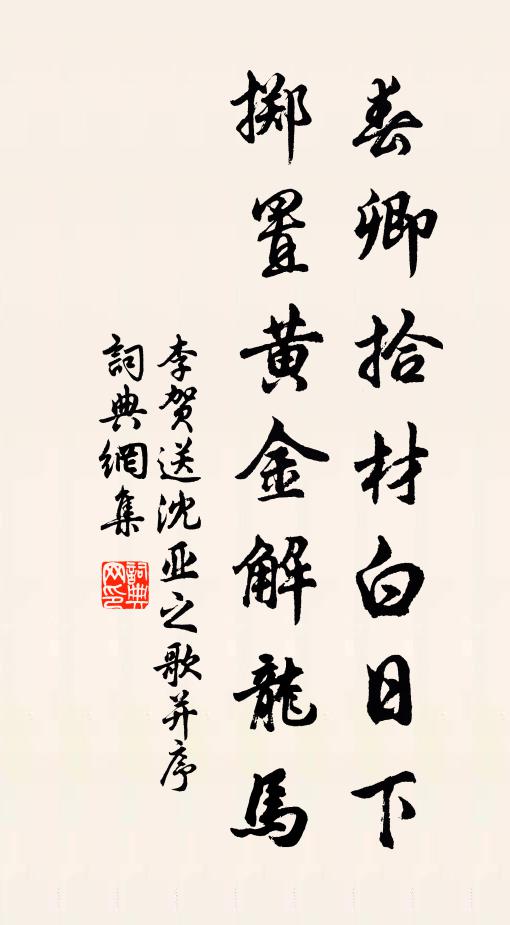 春卿拾材白日下
掷置黄金解龍馬
李贺送沈亚之歌并序
詞典網集
詞典网印